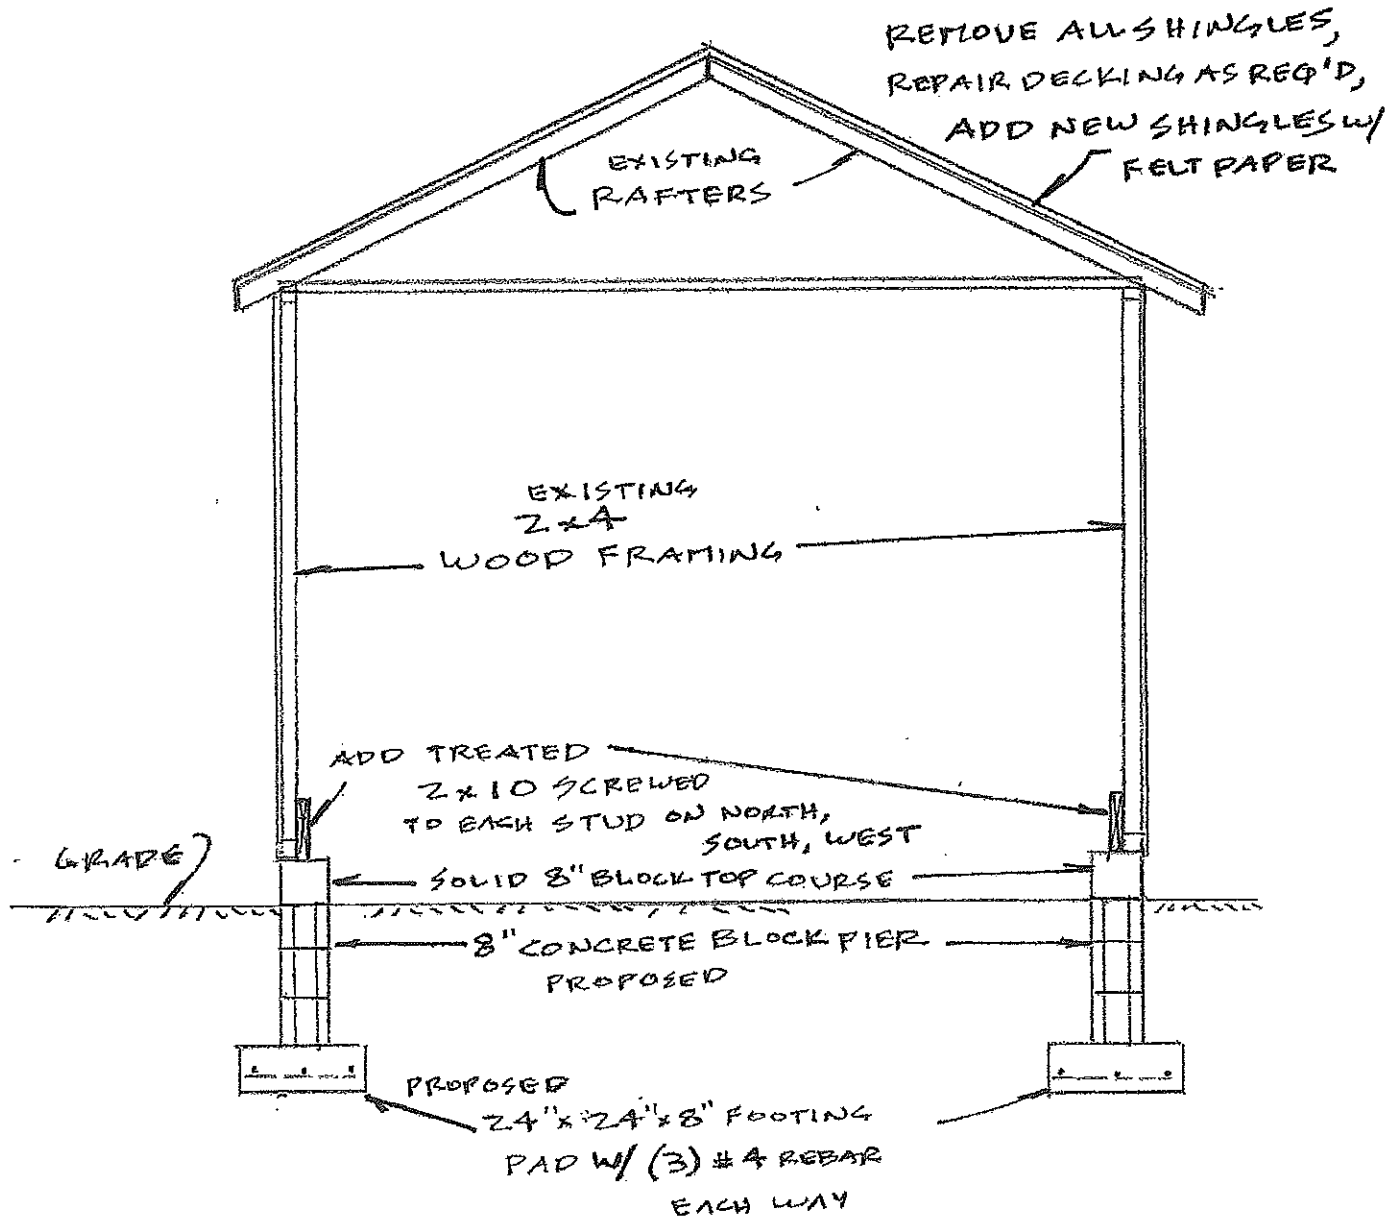 REMOVE ALL SHINGLES,
REPAIR DECKING AS REQ'D,
ADD NEW SHINGLES W/
FELT PAPER
EXISTING
RAFTERS
EXISTING
2x4
WOOD FRAMING
ADD TREATED
2x10 SCREWED
TO EACH STUD ON NORTH,
SOUTH, WEST
GRADE
SOLID 8" BLOCK TOP COURSE
8" CONCRETE BLOCK PIER
PROPOSED
PROPOSED
24"x24"x8" FOOTING
PAD W/ (3) #4 REBAR
EACH WAY